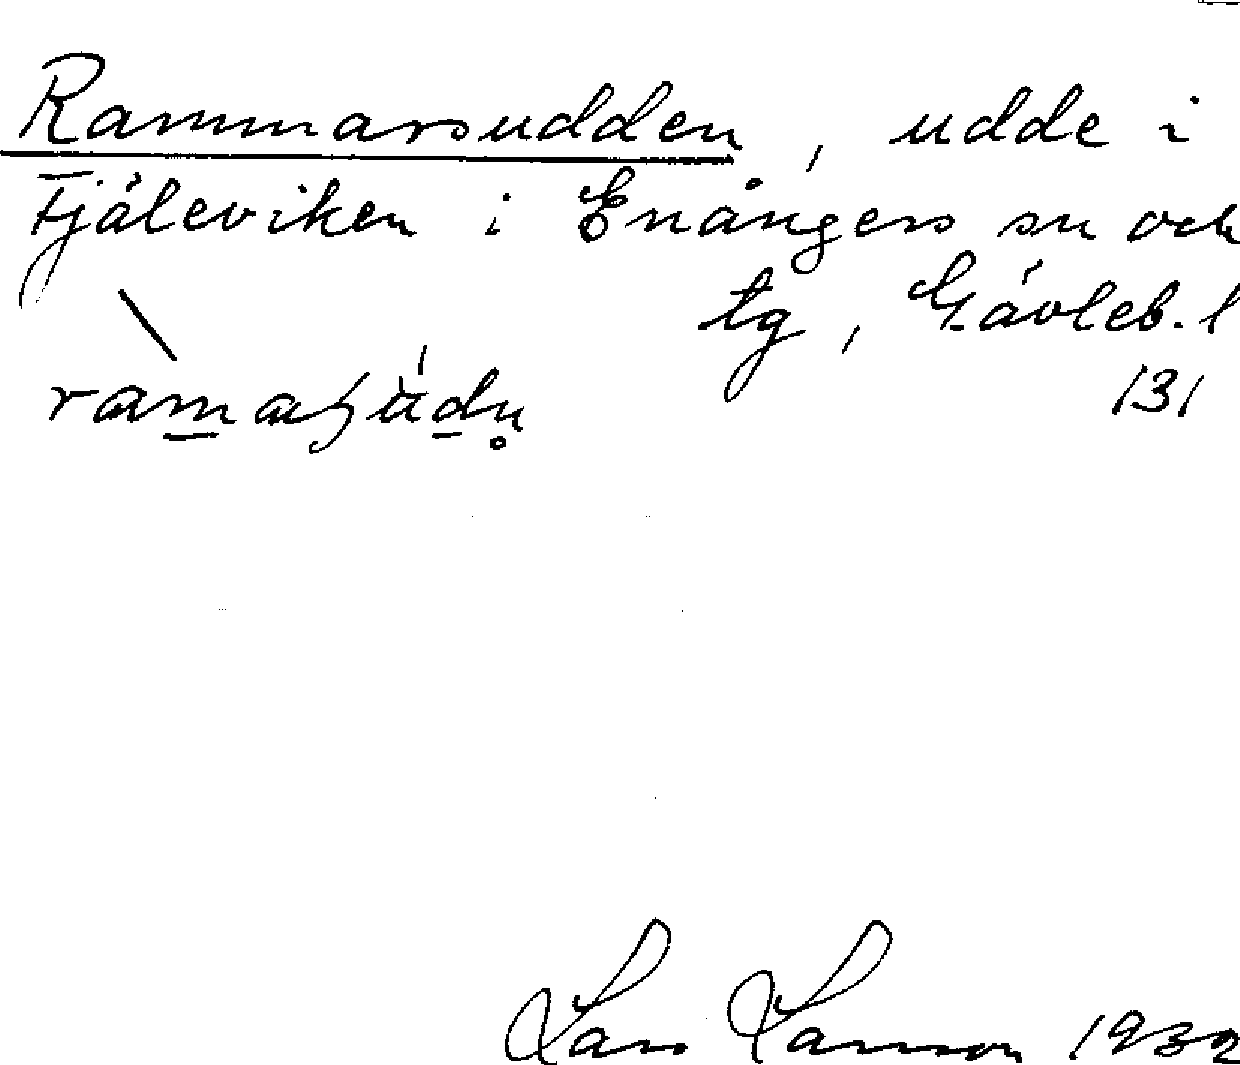 Rammarsudden, udde i
Fjäleviken i Enångers sn och
tg, Gävleb. l
131
Lars Larsson 1932